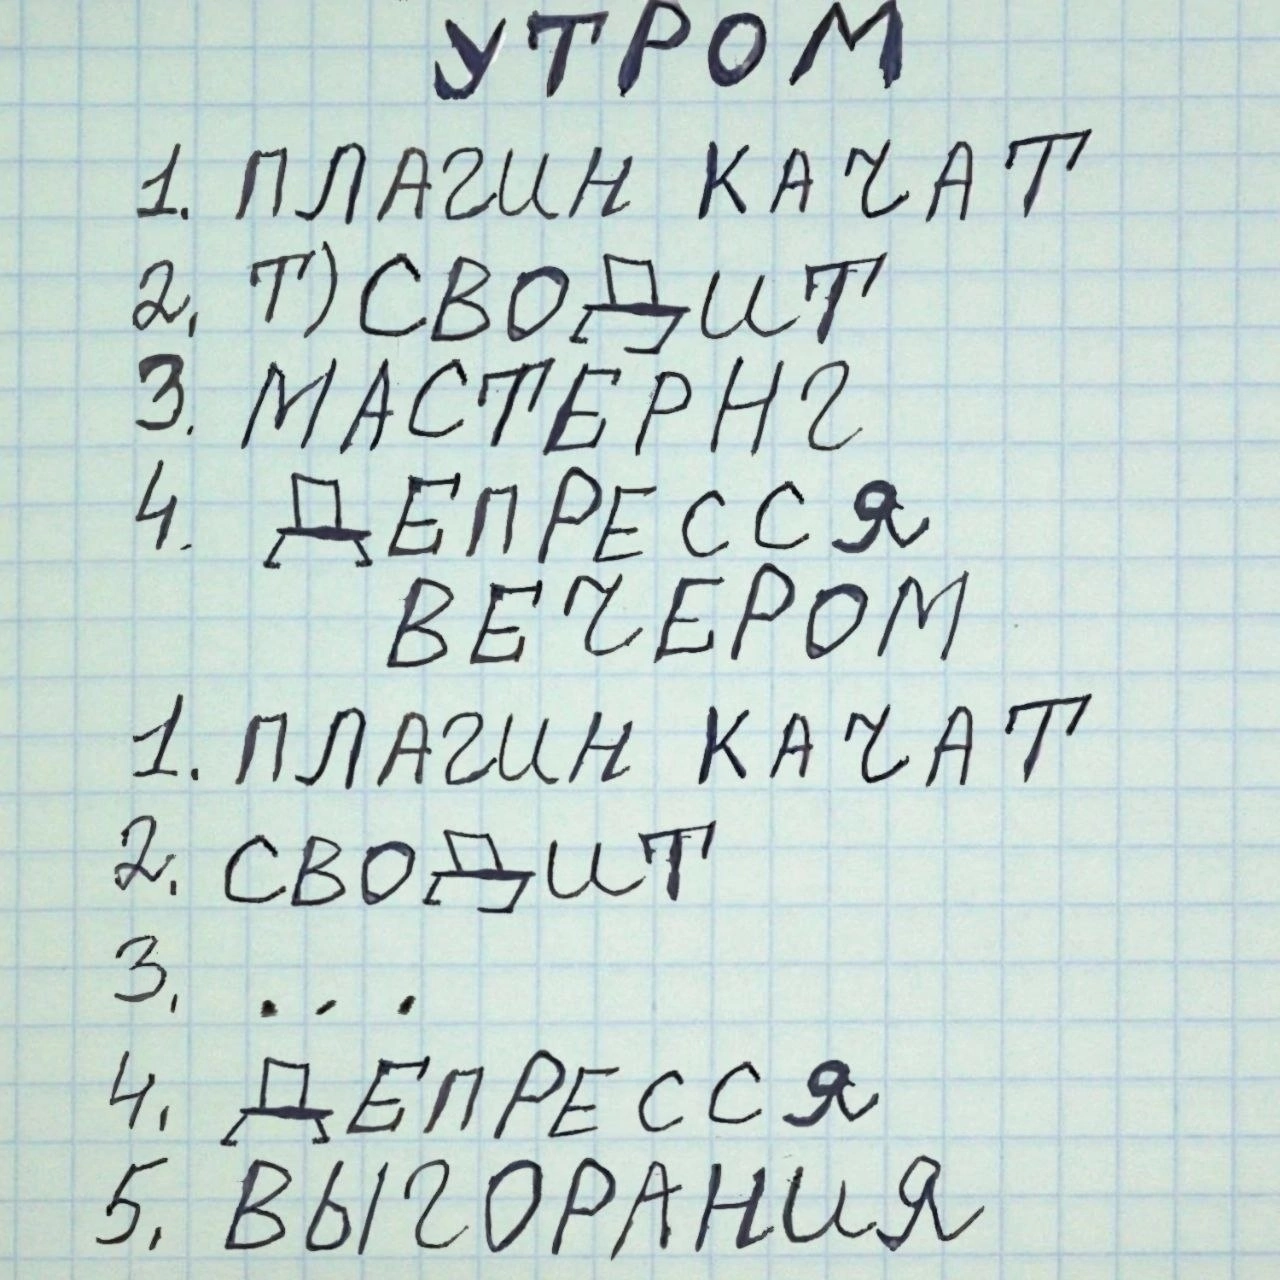 УТРОМ
1. ПЛАГИН КАЧАТ
2. Т) СВОДИТ
3. МАСТЕРНГ
4. ДЕПРЕССЯ
ВЕЧЕРОМ
1. ПЛАГИН КАЧАТ
2. СВОДИТ
3. ...
4. ДЕПРЕССЯ
5. ВЫГОРАНИЯ